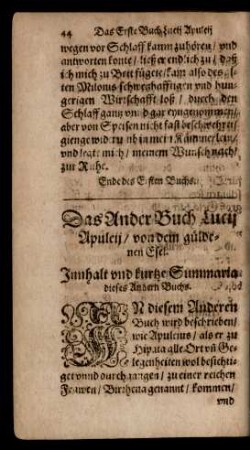 44 Das Erste Buch Lucij Apuleij
wegen vor Schlaff kaum zuhören / vnd
antworten konte / ließ er endlich zu / daß
ich mich zu Bett fügete / kam also deß al-
ten Milonis schweghafftigen vnd hun-
gerigen Wirtschafft loß / durch den
Schlaff gantz vnd gar eyngenommen /
aber von Speisen nicht fast beschweret /
gienge widerumb in mein Kämmerlein /
vnd legte mich / meinem Wunsch nach /
zur Ruhe.
Ende des Ersten Buchs.
Das Ander Buch Lucij
Apuleij / von dem gülde-
nen Esel.
Innhalt vnd kurtze Summaria
dieses Andern Buchs.
IN diesem Anderen
Buch wird beschrieben /
wie Apuleius / als er zu
Hipata alle Ort vñ Ge-
legenheiten wol besichti-
get vnd durchgangen / zu einer reichen
Frawen / Birrhena genannt / kommen /
vnd